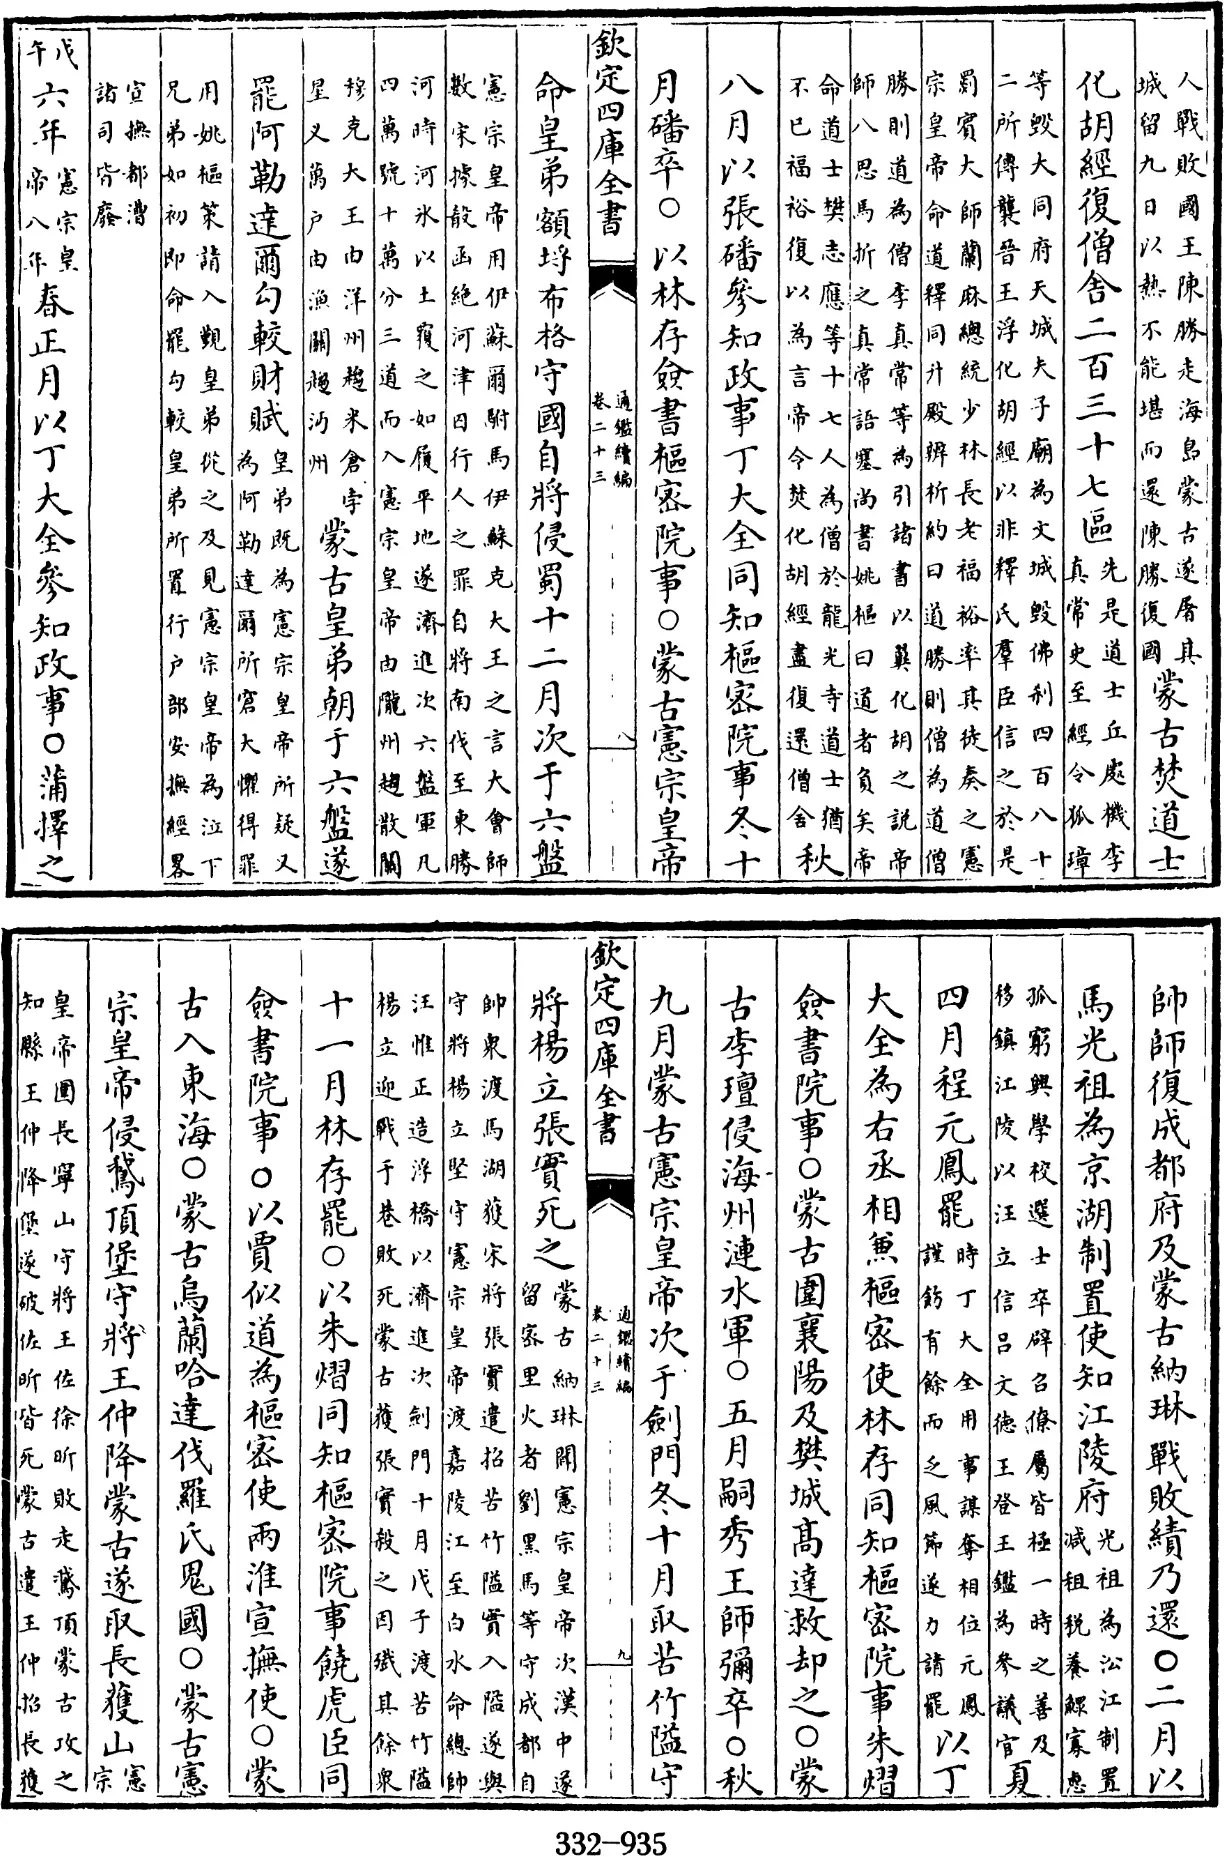 人戰敗國王陳勝走海島蒙古遂屠其城留九日以熱不能堪而還陳勝復國蒙古焚道士
化胡經復僧舍二百三十七區先是道士丘處機李真常史至經令狐璋
等毀大同府天城夫子廟為文城毀佛刹四百八十二所傳襲晉王浮化胡經以非釋氏羣臣信之於是
罽賓大師蘭麻總統少林長老福裕率其徒奏之憲宗皇帝命道釋同升殿辨析約曰道勝則僧為道僧
勝則道為僧李真常等為引諸書以冀化胡之說帝師八思馬折之真常語塞尚書姚樞曰道者負矣帝
命道士樊志應等十七人為僧於龍光寺道士猶不已福裕復以為言帝令焚化胡經盡復還僧舍秋
八月以張磻參知政事丁大全同知樞密院事冬十
月磻卒○以林存僉書樞密院事○蒙古憲宗皇帝
欽定四庫全書 通鑑續編卷二十三 八
命皇弟額埒布格守國自將侵蜀十二月次于六盤
憲宗皇帝用伊蘇爾駙馬伊蘇克大王之言大會師數宋據殽函絶河津囚行人之罪自將南伐至東勝
河時河冰以土覆之如履平地遂濟進次六盤軍凡四萬號十萬分三道而入憲宗皇帝由隴州趨散關
穆克大王由洋州趨米倉孛里义萬户由漁關趨沔州蒙古皇弟朝于六盤遂
罷阿勒達爾勾較財賦皇弟既為憲宗皇帝所疑又為阿勒達爾所窘大懼得罪
用姚樞策請入覲皇弟從之及見憲宗皇帝為泣下兄弟如初即命罷勾較皇弟所置行户部安撫經畧
宣撫都漕諸司皆廢
戊午六年憲宗皇帝八年春正月以丁大全參知政事○蒲擇之
帥師復成都府及蒙古納琳戰敗績乃還○二月以
馬光祖為京湖制置使知江陵府光祖為沿江制置減租稅養鰥寡惠
孤窮興學校選士卒辟召僚屬皆極一時之善及移鎮江陵以汪立信呂文德王登王鑑為參議官夏
四月程元鳳罷時丁大全用事謀奪相位元鳳謹飭有餘而乏風節遂力請罷以丁
大全為右丞相兼樞密使林存同知樞密院事朱熠
僉書院事○蒙古圍襄陽及樊城高達救却之○蒙
古李璮侵海州漣水軍○五月嗣秀王師彌卒○秋
九月蒙古憲宗皇帝次于劍門冬十月取苦竹隘守
欽定四庫全書 通鑑續編卷二十三 九
將楊立張實死之蒙古納琳聞憲宗皇帝次漢中遂留密里火者劉黑馬等守成都自
帥衆渡馬湖獲宋將張實遣招苦竹隘實入隘遂與守將楊立堅守憲宗皇帝渡嘉陵江至白水命總帥
汪惟正造浮橋以濟進次劍門十月戊子渡苦竹隘楊立迎戰于巷敗死蒙古獲張實殺之因殲其餘衆
十一月林存罷○以朱熠同知樞密院事饒虎臣同
僉書院事○以賈似道為樞密使兩淮宣撫使○蒙
古入東海○蒙古烏蘭哈達伐羅氏鬼國○蒙古憲
宗皇帝侵鵞頂堡守將王仲降蒙古遂取長獲山憲宗
皇帝圍長寧山守將王佐徐昕敗走鵞頂蒙古攻之知縣王仲降堡遂破佐昕皆死蒙古遣王仲招長獲
332-935